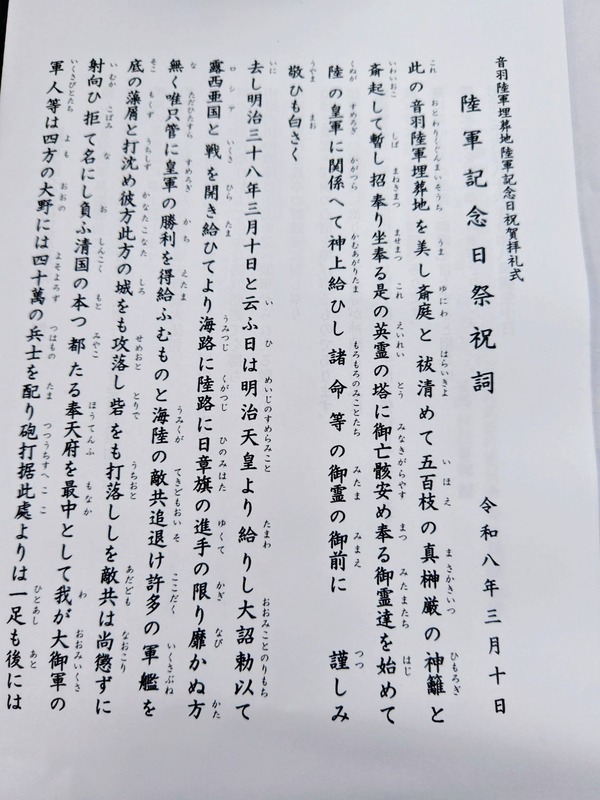 音羽陸軍埋葬地陸軍記念日祝賀拝礼式
陸軍記念日祭祝詞
令和八年三月十日
此の音羽陸軍埋葬地を美し斎庭と祓清めて五百枝の真榊厳の神籬と
斎起して暫し招奉り坐奉る是の英霊の塔に御亡骸安め奉る御霊達を始めて
陸の皇軍に関係へて神上給ひし諸命等の御霊の御前に 謹しみ
敬ひも白さく
去し明治三十八年三月十日と云ふ日は明治天皇より給りし大詔勅以て
露西亜国と戦を開き給ひてより海路に陸路に日章旗の進手の限り靡かぬ方
無く唯只管に皇軍の勝利を得給ふむものと海陸の敵共追退け許多の軍艦を
底の藻屑と打沈め彼方此方の城をも攻落し砦をも打落ししを敵共は尚懲ずに
射向ひ拒て名にし負ふ清国の本つ都たる奉天府を最中として我が大御軍の
軍人等は四方の大野には四十萬の兵士を配り砲打据此處よりは一足も後には